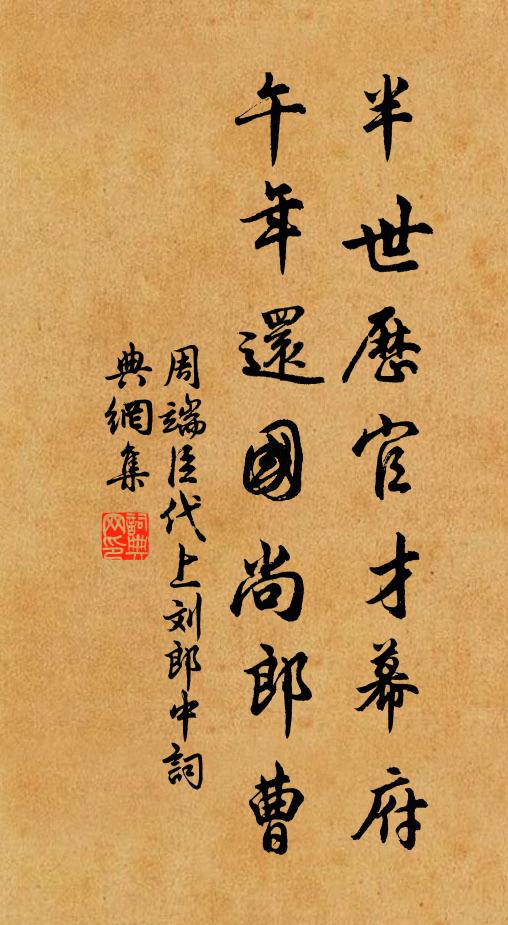 半世歷官才幕府
午年還國尚郎曹
周端臣代上刘郎中詞
典網集
詞典
网印